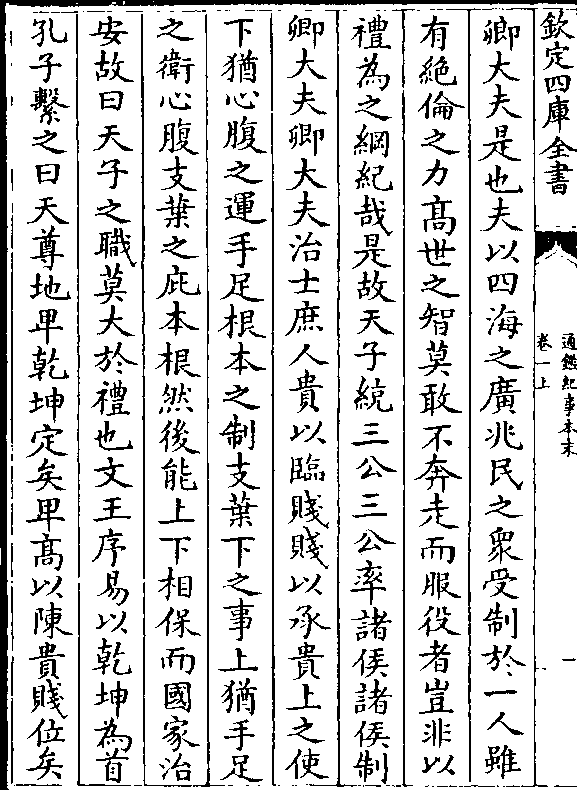 欽定四庫全書
通鑑紀事本末
卷一上
一
卿大夫是也夫以四海之廣兆民之衆受制於一人雖
有絶倫之力髙世之智莫敢不奔走而服役者豈非以
禮為之綱紀哉是故天子統三公三公率諸侯諸侯制
卿大夫卿大夫治士庶人貴以臨賤賤以承貴上之使
下猶心腹之運手足根本之制支葉下之事上猶手足
之衛心腹支葉之庇本根然後能上下相保而國家治
安故曰天子之職莫大於禮也文王序易以乾坤為首
孔子繫之曰天尊地卑乾坤定矣卑髙以陳貴賤位矣